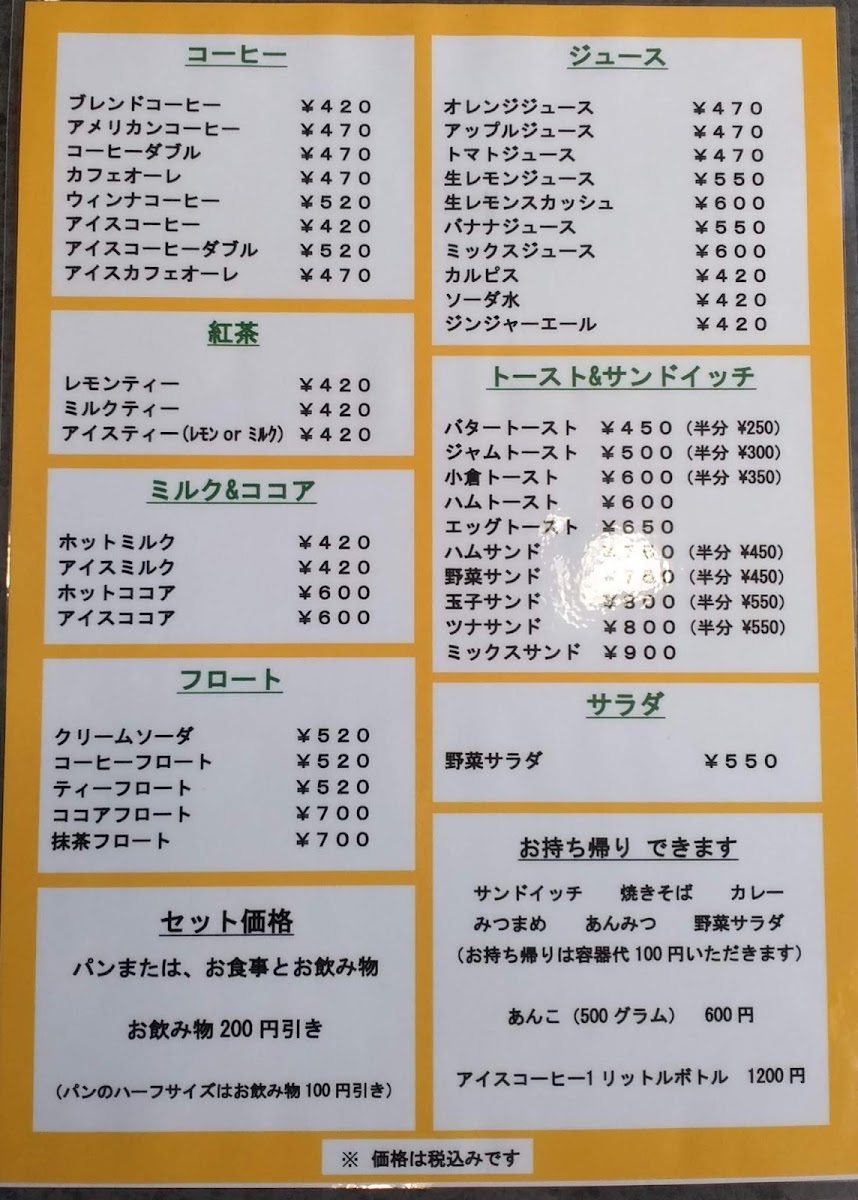 コーヒー
ブレンドコーヒー ￥４２０
アメリカンコーヒー ￥４７０
コーヒーダブル ￥４７０
カフェオーレ ￥４７０
ウィンナコーヒー ￥５２０
アイスコーヒー ￥４２０
アイスコーヒーダブル ￥５２０
アイスカフェオーレ ￥４７０
紅茶
レモンティー ￥４２０
ミルクティー ￥４２０
アイスティー(ﾚﾓﾝ or ﾐﾙｸ) ￥４２０
ミルク&ココア
ホットミルク ￥４２０
アイスミルク ￥４２０
ホットココア ￥６００
アイスココア ￥６００
フロート
クリームソーダ ￥５２０
コーヒーフロート ￥５２０
ティーフロート ￥５２０
ココアフロート ￥７００
抹茶フロート ￥７００
セット価格
パンまたは、お食事とお飲み物
お飲み物 200 円引き
（パンのハーフサイズはお飲み物 100 円引き）
ジュース
オレンジジュース ￥４７０
アップルジュース ￥４７０
トマトジュース ￥４７０
生レモンジュース ￥５５０
生レモンスカッシュ ￥６００
バナナジュース ￥５５０
ミックスジュース ￥６００
カルピス ￥４２０
ソーダ水 ￥４２０
ジンジャーエール ￥４２０
トースト&サンドイッチ
バタートースト ￥４５０（半分 ¥250）
ジャムトースト ￥５００（半分 ¥300）
小倉トースト ￥６００（半分 ¥350）
ハムトースト ￥６００
エッグトースト ￥６５０
ハムサンド （半分 ¥450）
野菜サンド （半分 ¥450）
玉子サンド ￥８００（半分 ¥550）
ツナサンド ￥８００（半分 ¥550）
ミックスサンド ￥９００
サラダ
野菜サラダ ￥５５０
お持ち帰り できます
サンドイッチ 焼きそば カレー
みつまめ あんみつ 野菜サラダ
（お持ち帰りは容器代 100 円いただきます）
あんこ（500 グラム） 600 円
アイスコーヒー1 リットルボトル 1200 円
※ 価格は税込みです